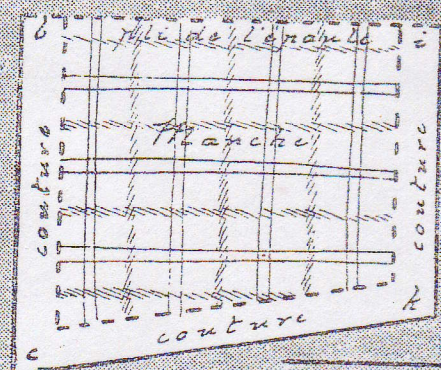 b pli de l'épaule i
Manche
couture
couture
c couture k